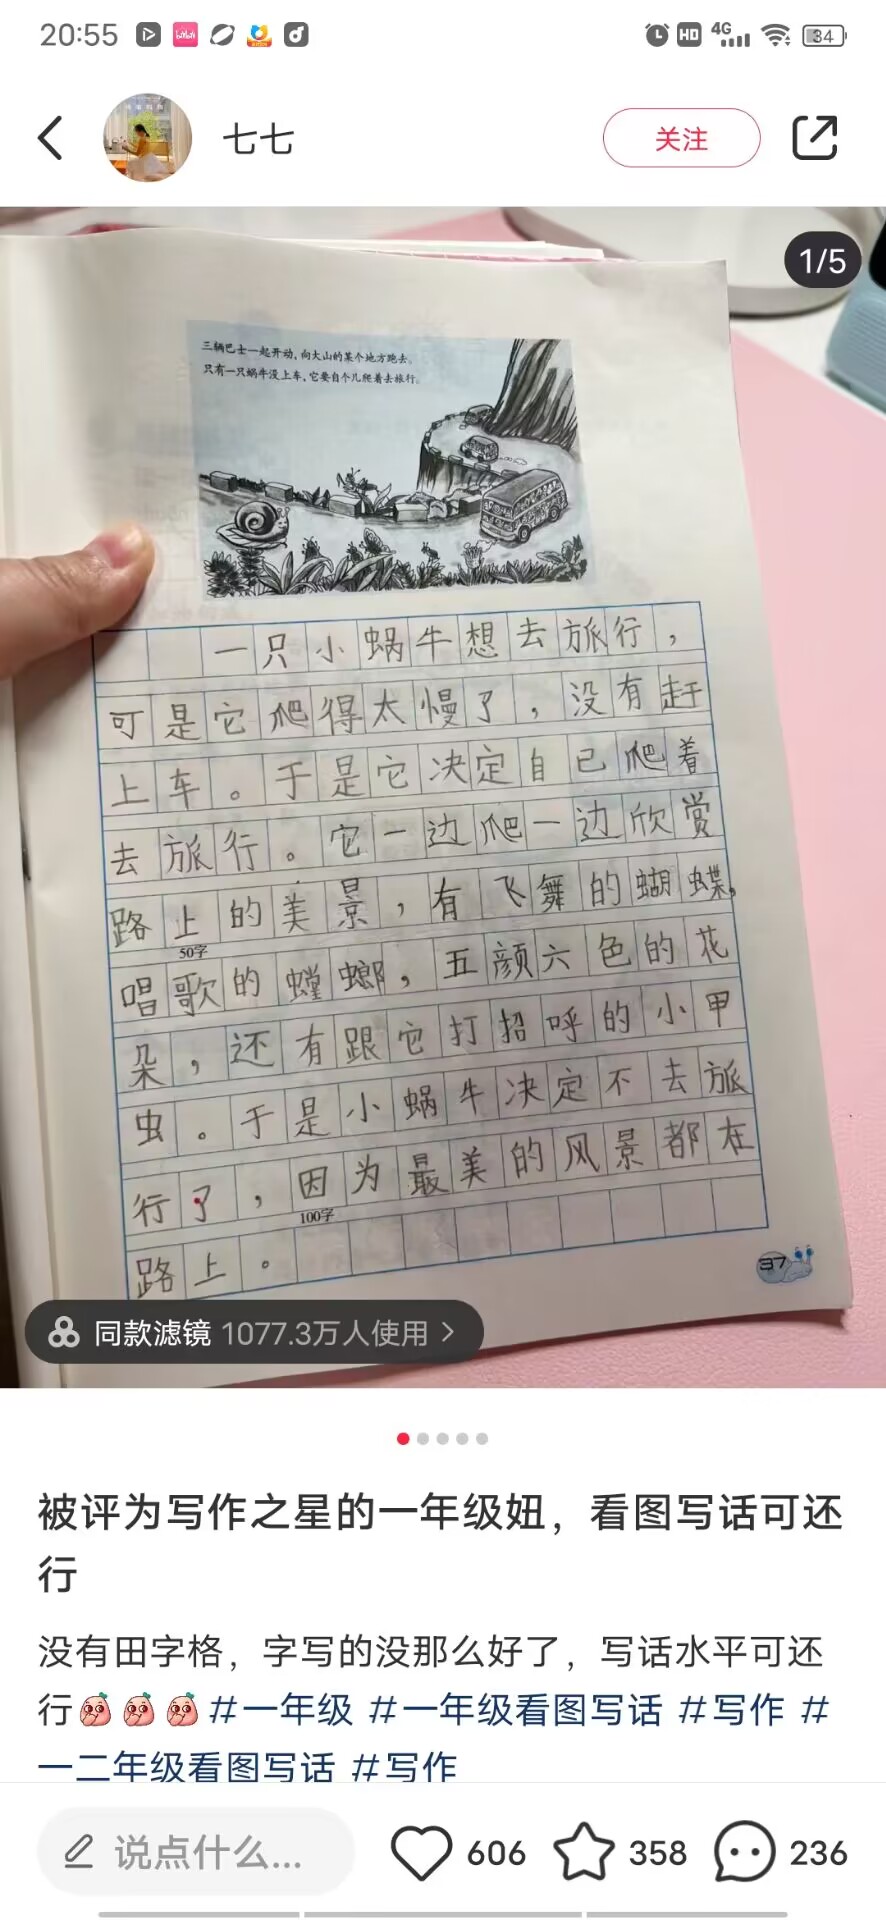 20:55
HD
4G
34
七七
关注
1/5
三辆巴士一起开动，向大山的某个地方跑去。
只有一只蜗牛没上车，它要自个儿爬着去旅行。
一只小蜗牛想去旅行，
可是它爬得太慢了，没有赶
上车。于是它决定自己爬着
去旅行。它一边爬一边欣赏
路上的美景，有飞舞的蝴蝶，
50字
唱歌的螳螂，五颜六色的花
朵，还有跟它打招呼的小甲
虫。于是小蜗牛决定不去旅
行了，因为最美的风景都在
100字
路上。
37
同款滤镜 1077.3万人使用 >
被评为写作之星的一年级妞，看图写话可还
行
没有田字格，字写的没那么好了，写话水平可还
行 #一年级 #一年级看图写话 #写作 #
一二年级看图写话 #写作
说点什么...
606
358
236